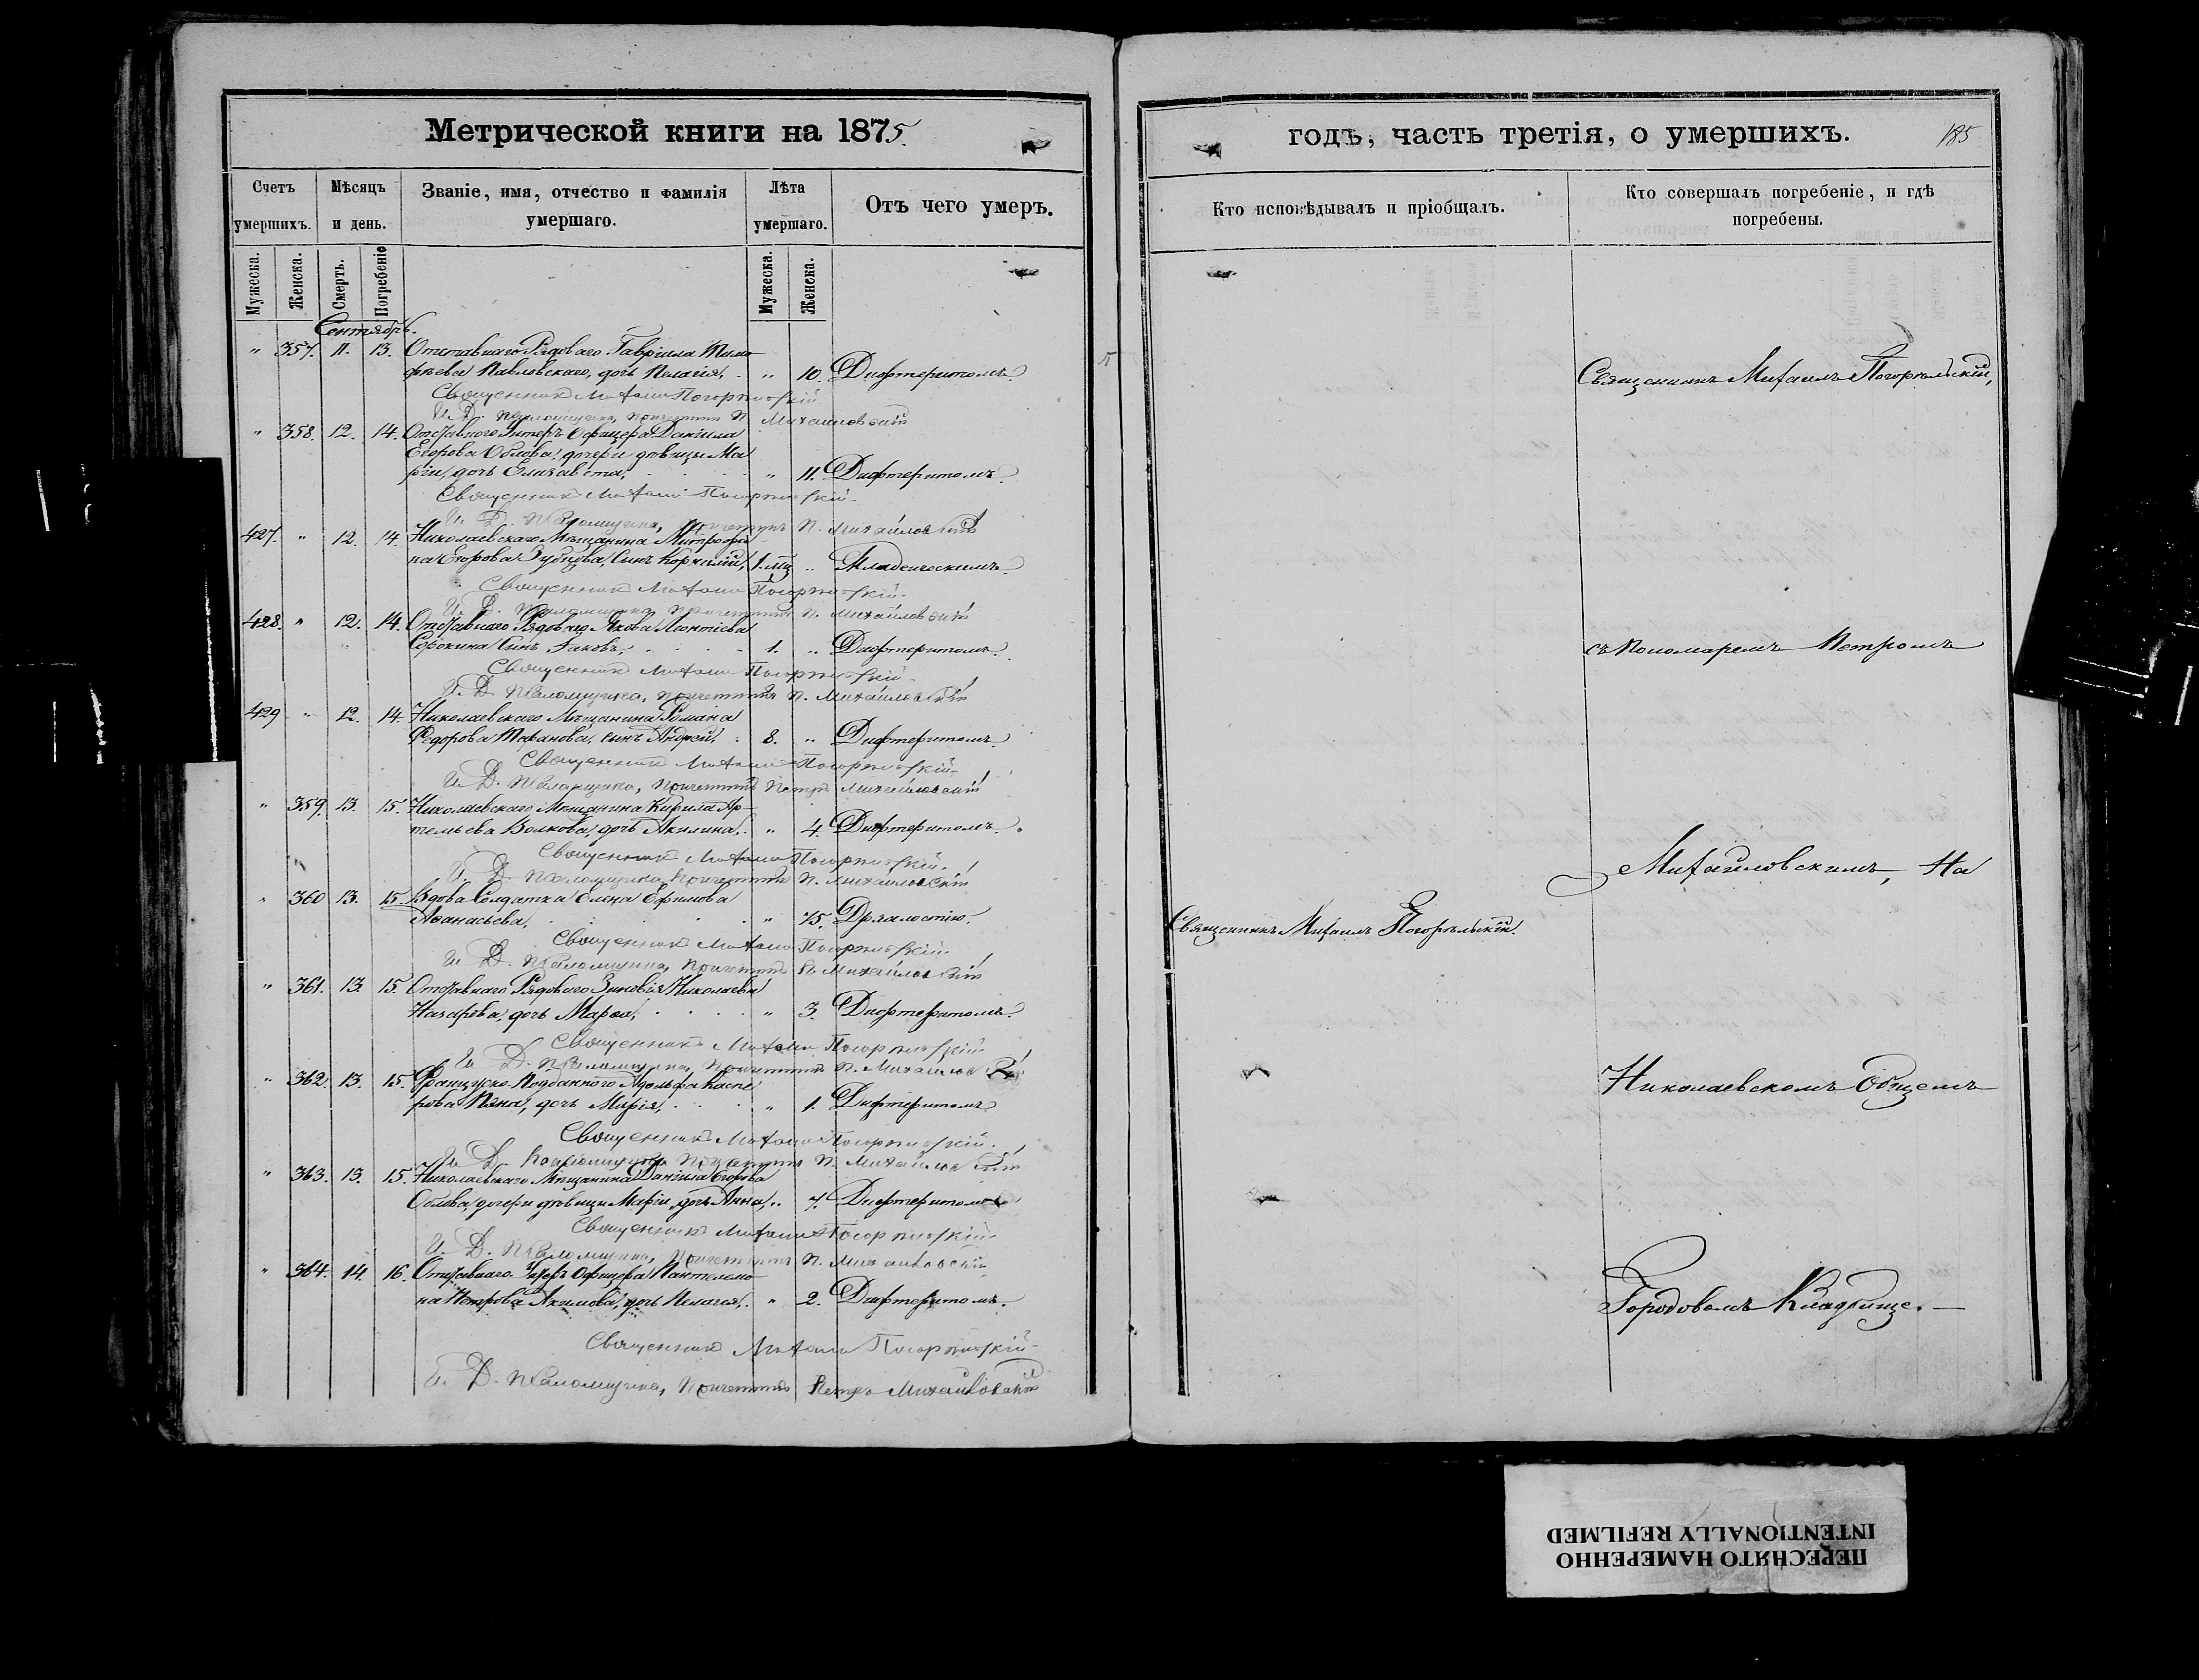 Метрической книги на 1875.
Счетъ умершихъ.
Мѣсяцъ и день.
Званіе, имя, отчество и фамилія умершаго.
Лѣта умершаго.
Отъ чего умеръ.
Мужеска.
Женска.
Смерть.
Погребеніе
Мужеска.
Женска.
Сентябрь.
" 357. 11. 13. Отставнаго Рядоваго Гавріила Тимо-
фѣева Павловскаго, дочь Пелагія, " 10. Дифтеритомъ.
Священникъ Михаилъ Погорѣльскій.
И. Д. Псаломщика, причетникъ П. Михайловскій
" 358. 12. 14. Отставнаго Унтеръ Офицера Даніила
Егорова Облова, дочери дѣвицы Ма
ріи, дочь Елизавета, " 11. Дифтеритомъ.
Священникъ Михаилъ Погорѣльскій.
И. Д. Псаломщика, причетникъ П. Михайловскій
427. " 12. 14. Николаевскаго Мѣщанина Митрофа
на Егорова Зубцова, сынъ Корнилій, 1. мц " Младенческимъ.
Священникъ Михаилъ Погорѣльскій.
И. Д. Псаломщика, причетникъ П. Михайловскій
428. " 12. 14. Отставнаго Рядоваго Якова Леонтіева
Сорокина сынъ Іаковъ, 1. " Дифтеритомъ.
Священникъ Михаилъ Погорѣльскій.
И. Д. Псаломщика, причетникъ П. Михайловскій
429 " 12. 14. Николаевскаго Мѣщанина Романа
Федорова сынъ Андрей, 8. " Дифтеритомъ.
Священникъ Михаилъ Погорѣльскій.
И. Д. Псаломщика, причетникъ Петръ Михайловскій
" 359. 13. 15. Николаевскаго Мѣщанина Кирила Ар-
темьева Волкова, дочь Акилина, " 4. Дифтеритомъ.
Священникъ Михаилъ Погорѣльскій.
И. Д. Псаломщика, причетникъ П. Михайловскій
" 360 13. 15. Вдова Солдатка Елена Ефимова
Аѳанасьева, " 75. Дряхлостію.
Священникъ Михаилъ Погорѣльскій.
И. Д. Псаломщика, причетникъ П. Михайловскій
" 361. 13. 15. Отставнаго Рядоваго Зиновія Николаева
Назарова, дочь Марѳа, " 3. Дифтеритомъ.
Священникъ Михаилъ Погорѣльскій
И. Д. Псаломщика, причетникъ П. Михайловскій
" 362. 13. 15. Француско-Подданного Адольфа Каспе
рова дочь Марія, " 1. Дифтеритомъ
Священникъ Михаилъ Погорѣльскій.
И. Д. Псаломщика причетникъ П. Михайловскій
" 363. 13. 15. Николаевскаго Мѣщанина Даніила Егорова
Облова, дочери дѣвицы Маріи, дочь Анна, " 7. Дифтеритомъ
Священникъ Михаилъ Погорѣльскій
И. Д. Псаломщика, причетникъ П. Михайловскій
" 364. 14. 16. Отставнаго Унтеръ Офицера Пантелеймо
на Петрова Акимова, дочь Пелагія, " 2. Дифтеритомъ.
Священникъ Михаилъ Погорѣльскій
И. Д. Псаломщика, причетникъ Петръ Михайловскій
годъ, часть третія, о умершихъ.
185
Кто исповѣдывалъ и пріобщалъ.
Кто совершалъ погребеніе, и гдѣ погребены.
Священникъ Михаилъ Погорѣльскій,
съ Пономаремъ Петромъ
Михайловскимъ, на
Священникъ Михаилъ Погорѣльскій.
Николаевскомъ Общемъ
Городовомъ Кладбище.—
ПЕРЕСНЯТО НАМЕРЕННО
INTENTIONALLY REFILMED